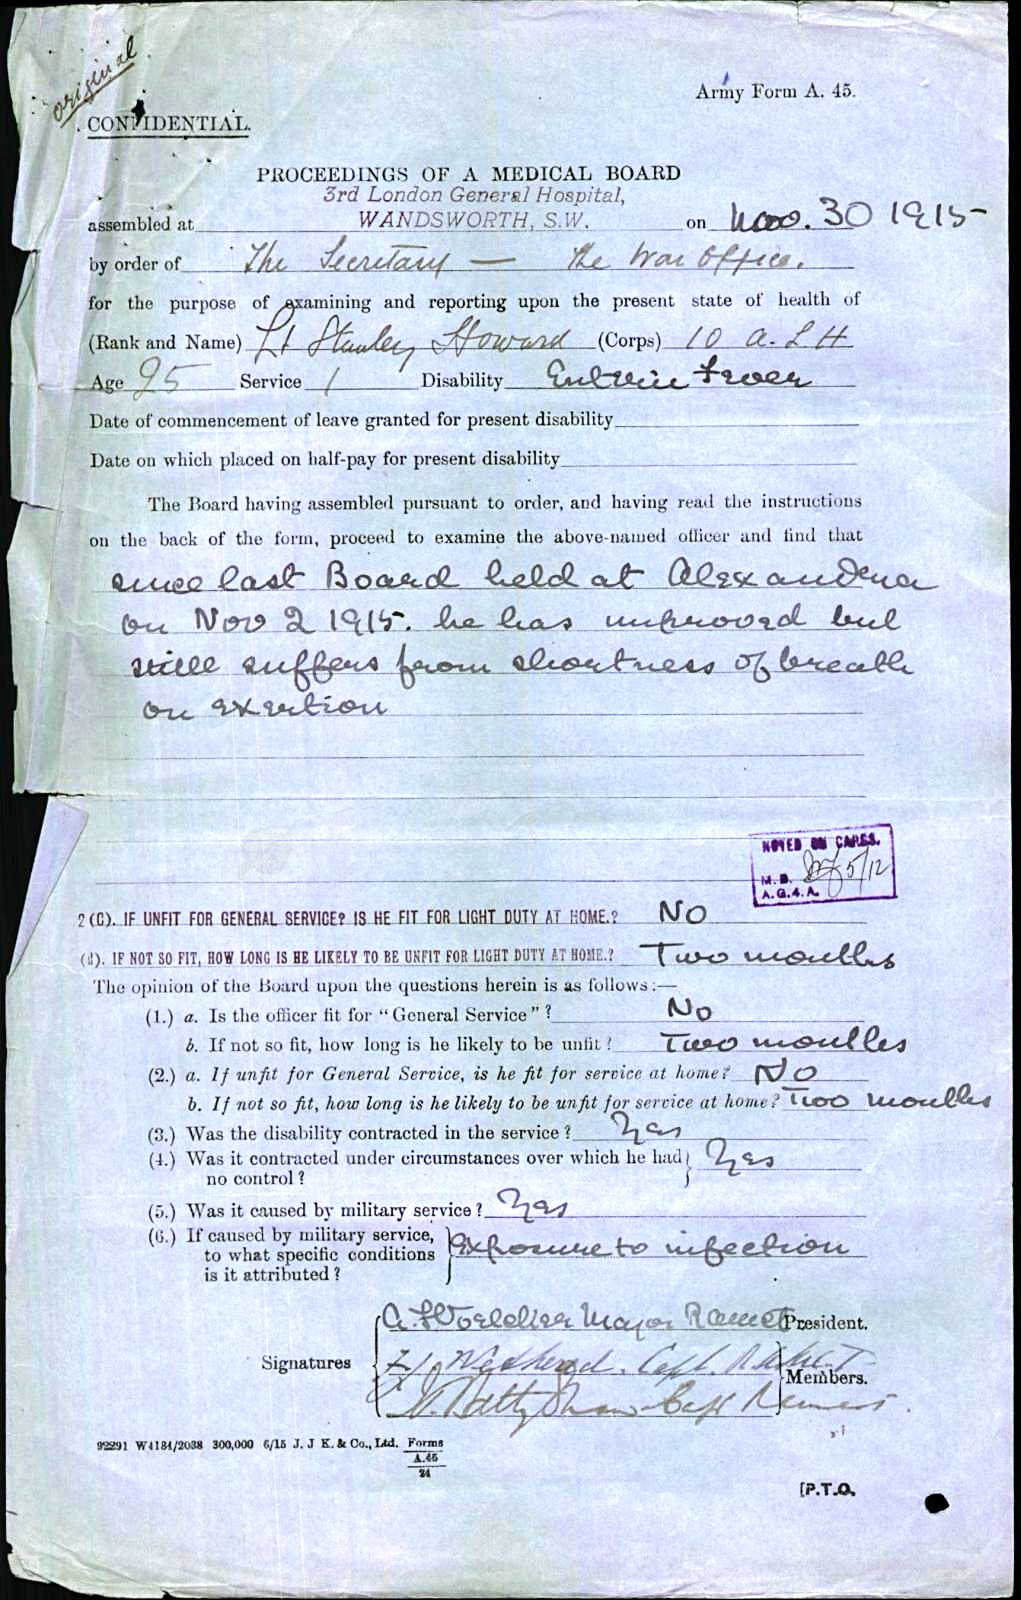 original
CONFIDENTIAL.
Army Form A. 45.
PROCEEDINGS OF A MEDICAL BOARD
3rd London General Hospital,
assembled at WANDSWORTH, S.W. on Nov. 30 1915
by order of The Secretary — The War Office.
for the purpose of examining and reporting upon the present state of health of
(Rank and Name) Lt Stanley Howard (Corps) 10 A. L H
Age 25 Service 1 Disability Enteric Fever
Date of commencement of leave granted for present disability
Date on which placed on half-pay for present disability
The Board having assembled pursuant to order, and having read the instructions
on the back of the form, proceed to examine the above-named officer and find that
since last Board held at Alexandria
on Nov 2 1915. he has improved but
still suffers from shortness of breath
on exertion
NOTED ON CARDS.
M.D. 5/12
A.G.4.A.
2 (C). IF UNFIT FOR GENERAL SERVICE? IS HE FIT FOR LIGHT DUTY AT HOME.? No
(d). IF NOT SO FIT, HOW LONG IS HE LIKELY TO BE UNFIT FOR LIGHT DUTY AT HOME.? Two months
The opinion of the Board upon the questions herein is as follows:—
(1.) a. Is the officer fit for "General Service"? No
b. If not so fit, how long is he likely to be unfit? Two months
(2.) a. If unfit for General Service, is he fit for service at home? No
b. If not so fit, how long is he likely to be unfit for service at home? Two months
(3.) Was the disability contracted in the service? Yes
(4.) Was it contracted under circumstances over which he had Yes
no control?
(5.) Was it caused by military service? Yes
(6.) If caused by military service,
to what specific conditions exposure to infection
is it attributed?
Major President.
Signatures Capt. Members.
Capt
92291 W4184/2038 300,000 6/15 J. J K. & Co., Ltd. Forms
A.45
24
[P.T.O.